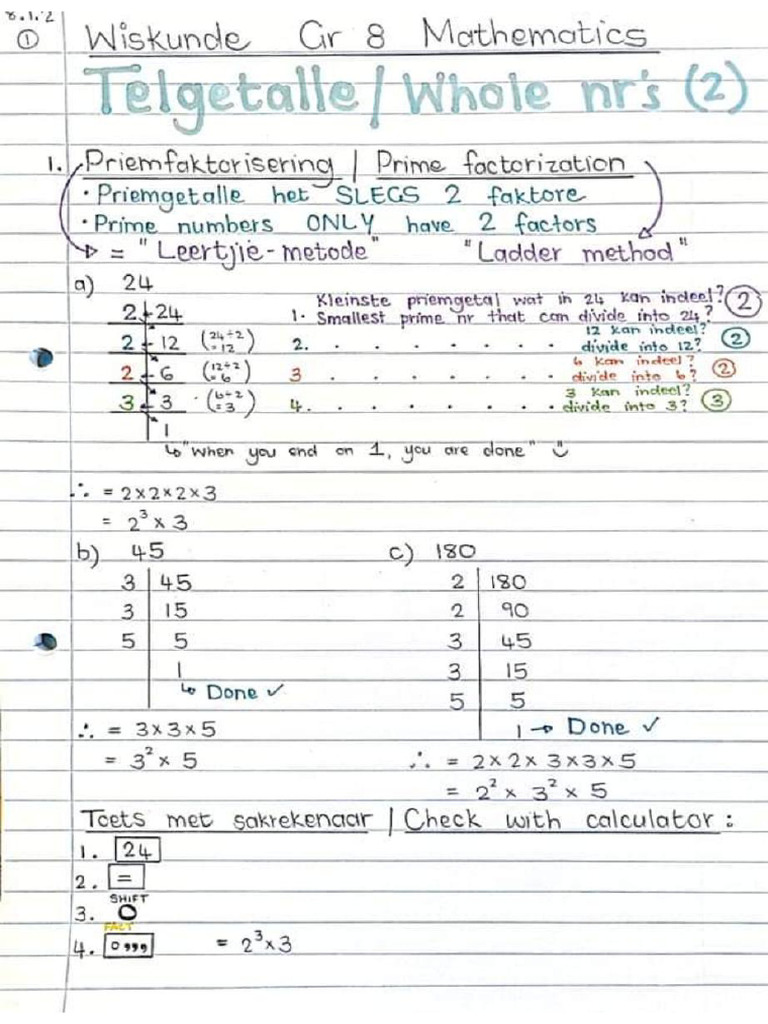 8.1.2
① Wiskunde Gr 8 Mathematics
Telgetalle / Whole nr's (2)
1. Priemfaktorisering | Prime factorization
• Priemgetalle het SLEGS 2 faktore
• Prime numbers ONLY have 2 factors
= "Leertjie-metode" "Ladder method"
a) 24
Kleinste priemgetal wat in 24 kan indeel?
2 | 24 1. Smallest prime nr that can divide into 24? ②
12 kan indeel?
2 | 12 (24÷2 = 12) 2. . . . . . . . divide into 12? ②
6 kan indeel?
2 | 6 (12÷2 = 6) 3 . . . . . . . divide into 6? ②
3 kan indeel?
3 | 3 (6÷2 = 3) 4. . . . . . . . divide into 3? ③
1
↳ "When you end on 1, you are done" ☺
∴ = 2×2×2×3
= 2³ × 3
b) 45 c) 180
3 | 45 2 | 180
3 | 15 2 | 90
5 | 5 3 | 45
1 3 | 15
↳ Done ✓ 5 | 5
∴ = 3×3×5 1 → Done ✓
= 3² × 5 ∴ = 2×2×3×3×5
= 2² × 3² × 5
Toets met sakrekenaar | Check with calculator :
1. 24
2. =
SHIFT
3. O
FACT
4. o,,, = 2³×3